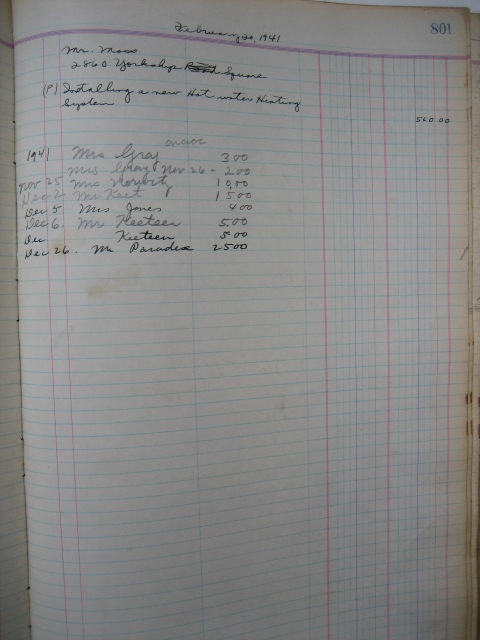 801
February 20, 1941
Mr. Moss
2860 Yorkship Road Square
(P) Installing a new Hot water Heating
System
560 00
1941 Mrs Gray 3 00
Mrs Gray Nov 26 - 2 00
Nov 25 Mrs 10 00
Dec 2 Mr Kest 15 00
Dec 5 Mrs Jones 4 00
Dec 6. Mr Keeteen 5.00
Dec Keeteen 5 00
Dec 26. Mr Paradise 25 00